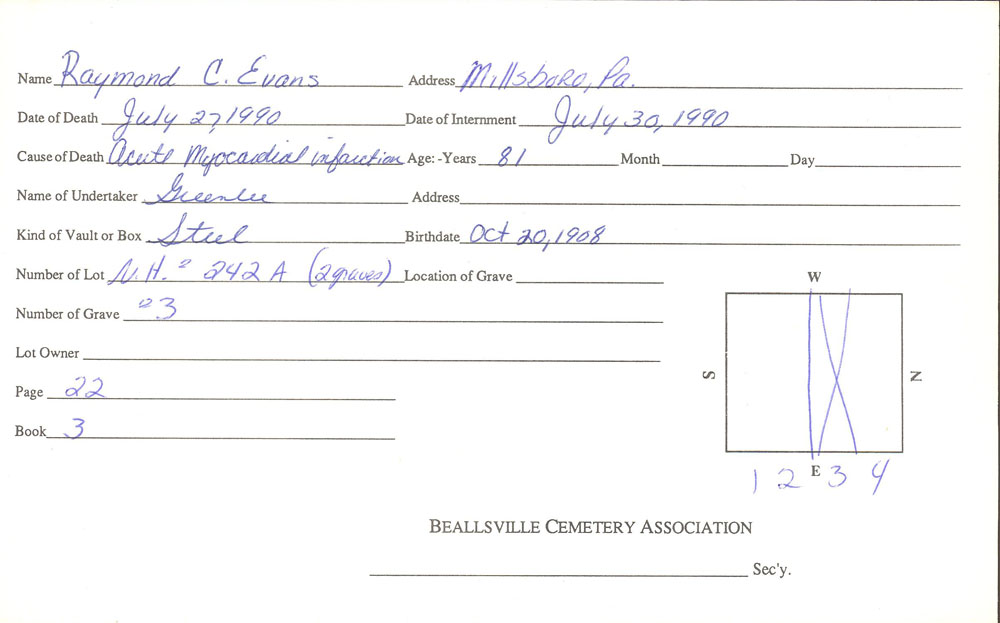 Name Raymond C. Evans Address Millsboro, Pa.
Date of Death July 27, 1990 Date of Internment July 30, 1990
Cause of Death Acute Myocardial infarction Age: -Years 81 Month Day
Name of Undertaker Greenlee Address
Kind of Vault or Box Steel Birthdate Oct 20, 1908
Number of Lot N.H. 242 A (2 graves) Location of Grave
Number of Grave 3
Lot Owner
Page 22
Book 3
W
S N
E
1 2 3 4
BEALLSVILLE CEMETERY ASSOCIATION
Sec'y.